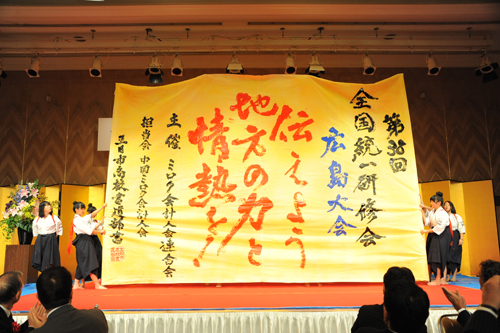 第36回
全国統一研修会
広島大会
伝えよう
地方の力と
情熱を!
主催 ミロク会計人会連合会
担当会 中国ミロク会計人会
五日市高校書道部書